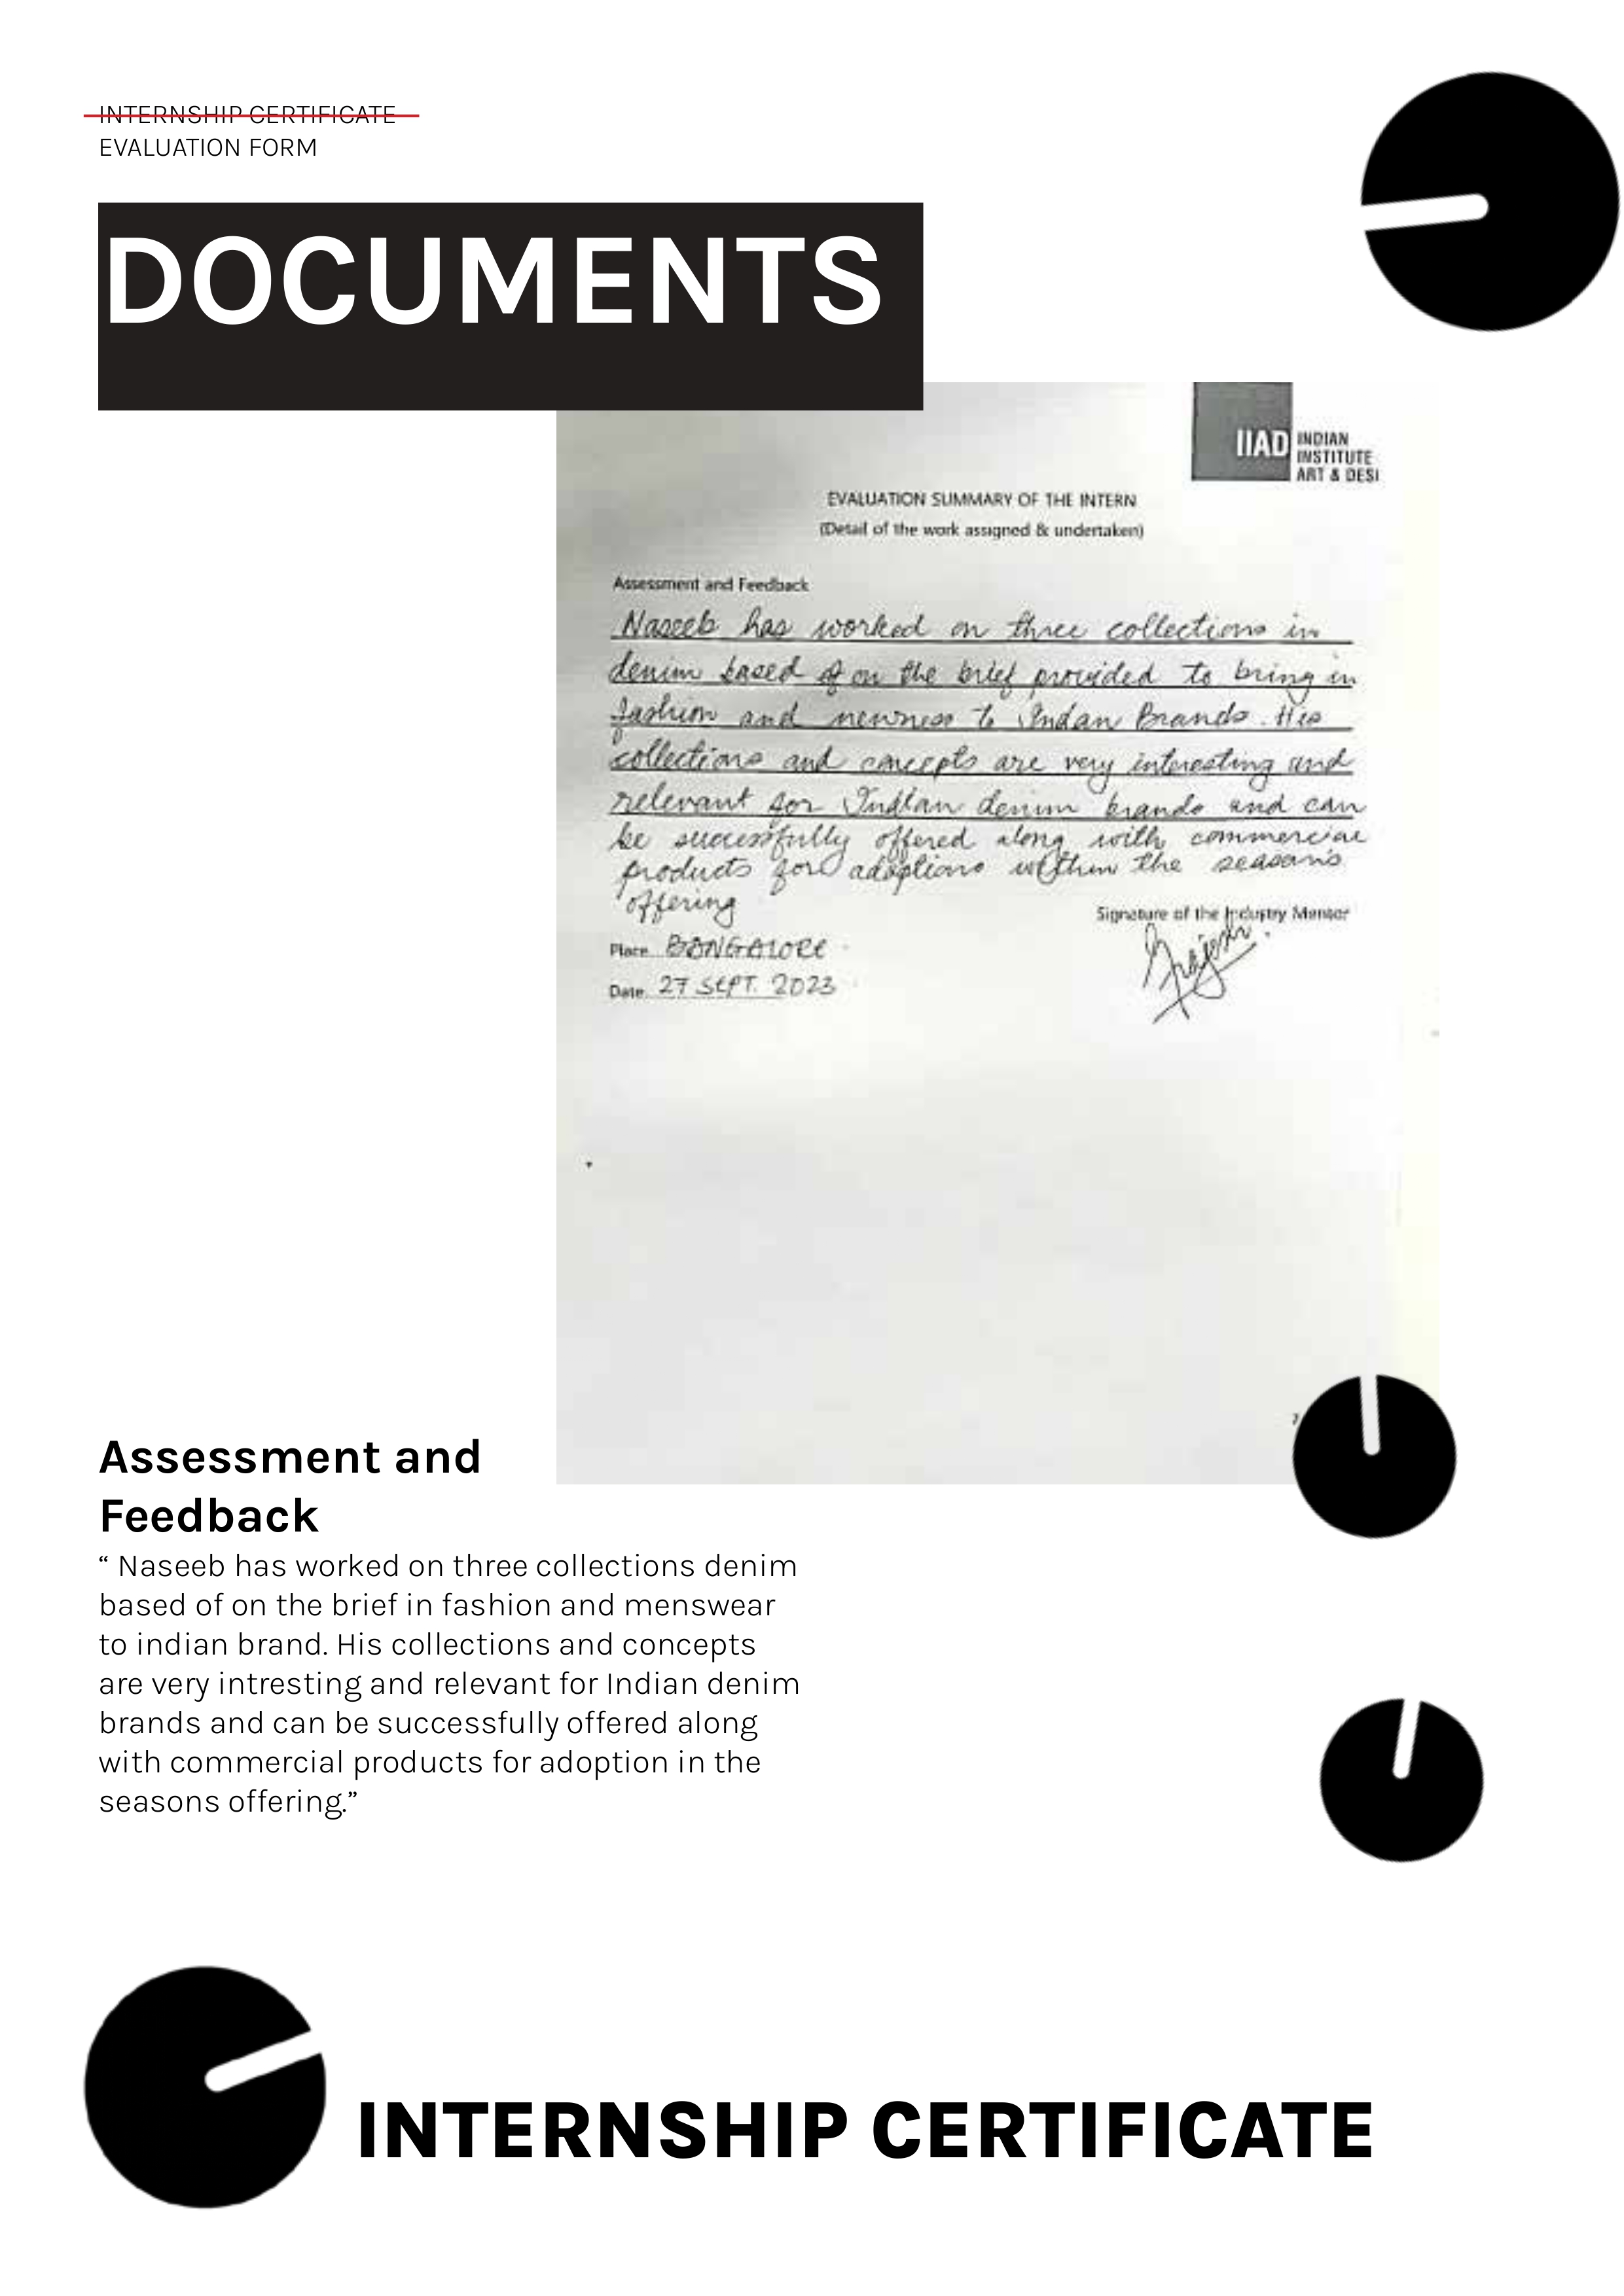 INTERNSHIP CERTIFICATE
EVALUATION FORM
DOCUMENTS
IIAD
INDIAN
INSTITUTE
ART & DESI
EVALUATION SUMMARY OF THE INTERN
(Detail of the work assigned & undertaken)
Assessment and Feedback
Naseeb has worked on three collections in
denim based of on the brief provided to bring in
fashion and newness to Indan Brands. His
collections and concepts are very interesting and
relevant for Indian denim brands and can
be successfully offered along with commercial
products for adoptions within the season's
offering
Signature of the Industry Mentor
Place BANGALORE
Date 27 SEPT. 2023
7
Assessment and
Feedback
“ Naseeb has worked on three collections denim
based of on the brief in fashion and menswear
to indian brand. His collections and concepts
are very intresting and relevant for Indian denim
brands and can be successfully offered along
with commercial products for adoption in the
seasons offering.”
INTERNSHIP CERTIFICATE